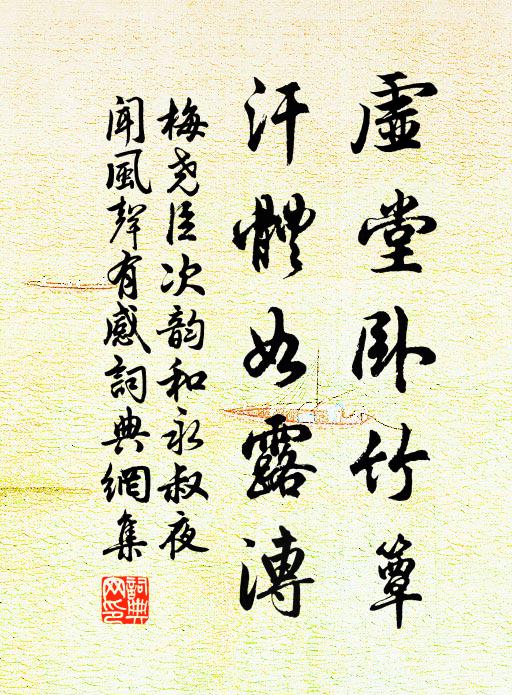 虛堂臥竹簟
汗體如露漙
梅堯臣次韵和永叔夜
聞風聲有感詞典網集
詞典網印